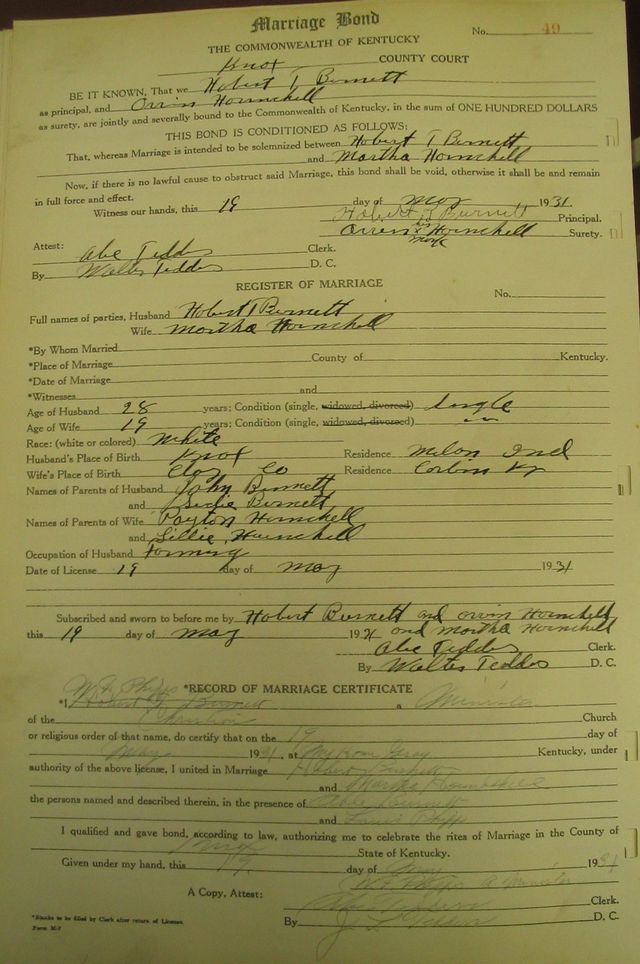 Marriage Bond
No. 49
THE COMMONWEALTH OF KENTUCKY
Knox COUNTY COURT
BE IT KNOWN, That we Hobert T Burnett
as principal, and Orvin Hornchell
as surety, are jointly and severally bound to the Commonwealth of Kentucky, in the sum of ONE HUNDRED DOLLARS
THIS BOND IS CONDITIONED AS FOLLOWS:
That, whereas Marriage is intended to be solemnized between Hobert T Burnett
and Martha Hornchell
Now, if there is no lawful cause to obstruct said Marriage, this bond shall be void, otherwise it shall be and remain
in full force and effect.
Witness our hands, this 19 day of May 1931.
Hobert T Burnett Principal.
Orvin his x mark Hornchell Surety.
Attest: Abe Tedders Clerk.
By Walter Tedders D. C.
REGISTER OF MARRIAGE
No.
Full names of parties, Husband Hobert T Burnett
Wife Martha Hornchell
*By Whom Married
*Place of Marriage County of Kentucky.
*Date of Marriage
*Witnesses and
Age of Husband 28 years; Condition (single, widowed, divorced) Single
Age of Wife 19 years; Condition (single, widowed, divorced) "
Race: (white or colored) White
Husband's Place of Birth Knox Residence Milan Ind
Wife's Place of Birth Clay Co Residence Corbin Ky
Names of Parents of Husband John Burnett
and Burnett
Names of Parents of Wife Payton Hornchell
and Lillie Hornchell
Occupation of Husband Farming
Date of License 19 day of May 1931
Subscribed and sworn to before me by Hobert Burnett and Orvin Hornchell
this 19 day of May 1931 and Martha Hornchell
Abe Tedders Clerk.
By Walter Tedders D. C.
*RECORD OF MARRIAGE CERTIFICATE
*I W. F. Phipps a Minister
of the Christian Church
or religious order of that name, do certify that on the 19 day of
May 1931, at Kentucky, under
authority of the above license, I united in Marriage Hobert Burnett
and Martha
the persons named and described therein, in the presence of Burnett
and Phipps
I qualified and gave bond, according to law, authorizing me to celebrate the rites of Marriage in the County of
Knox State of Kentucky.
Given under my hand, this 19 day of May 1931
W. F. Phipps A Minister
A Copy, Attest: Clerk.
By D. C.
*Blanks to be filled by Clerk after return of License.
Form M-7